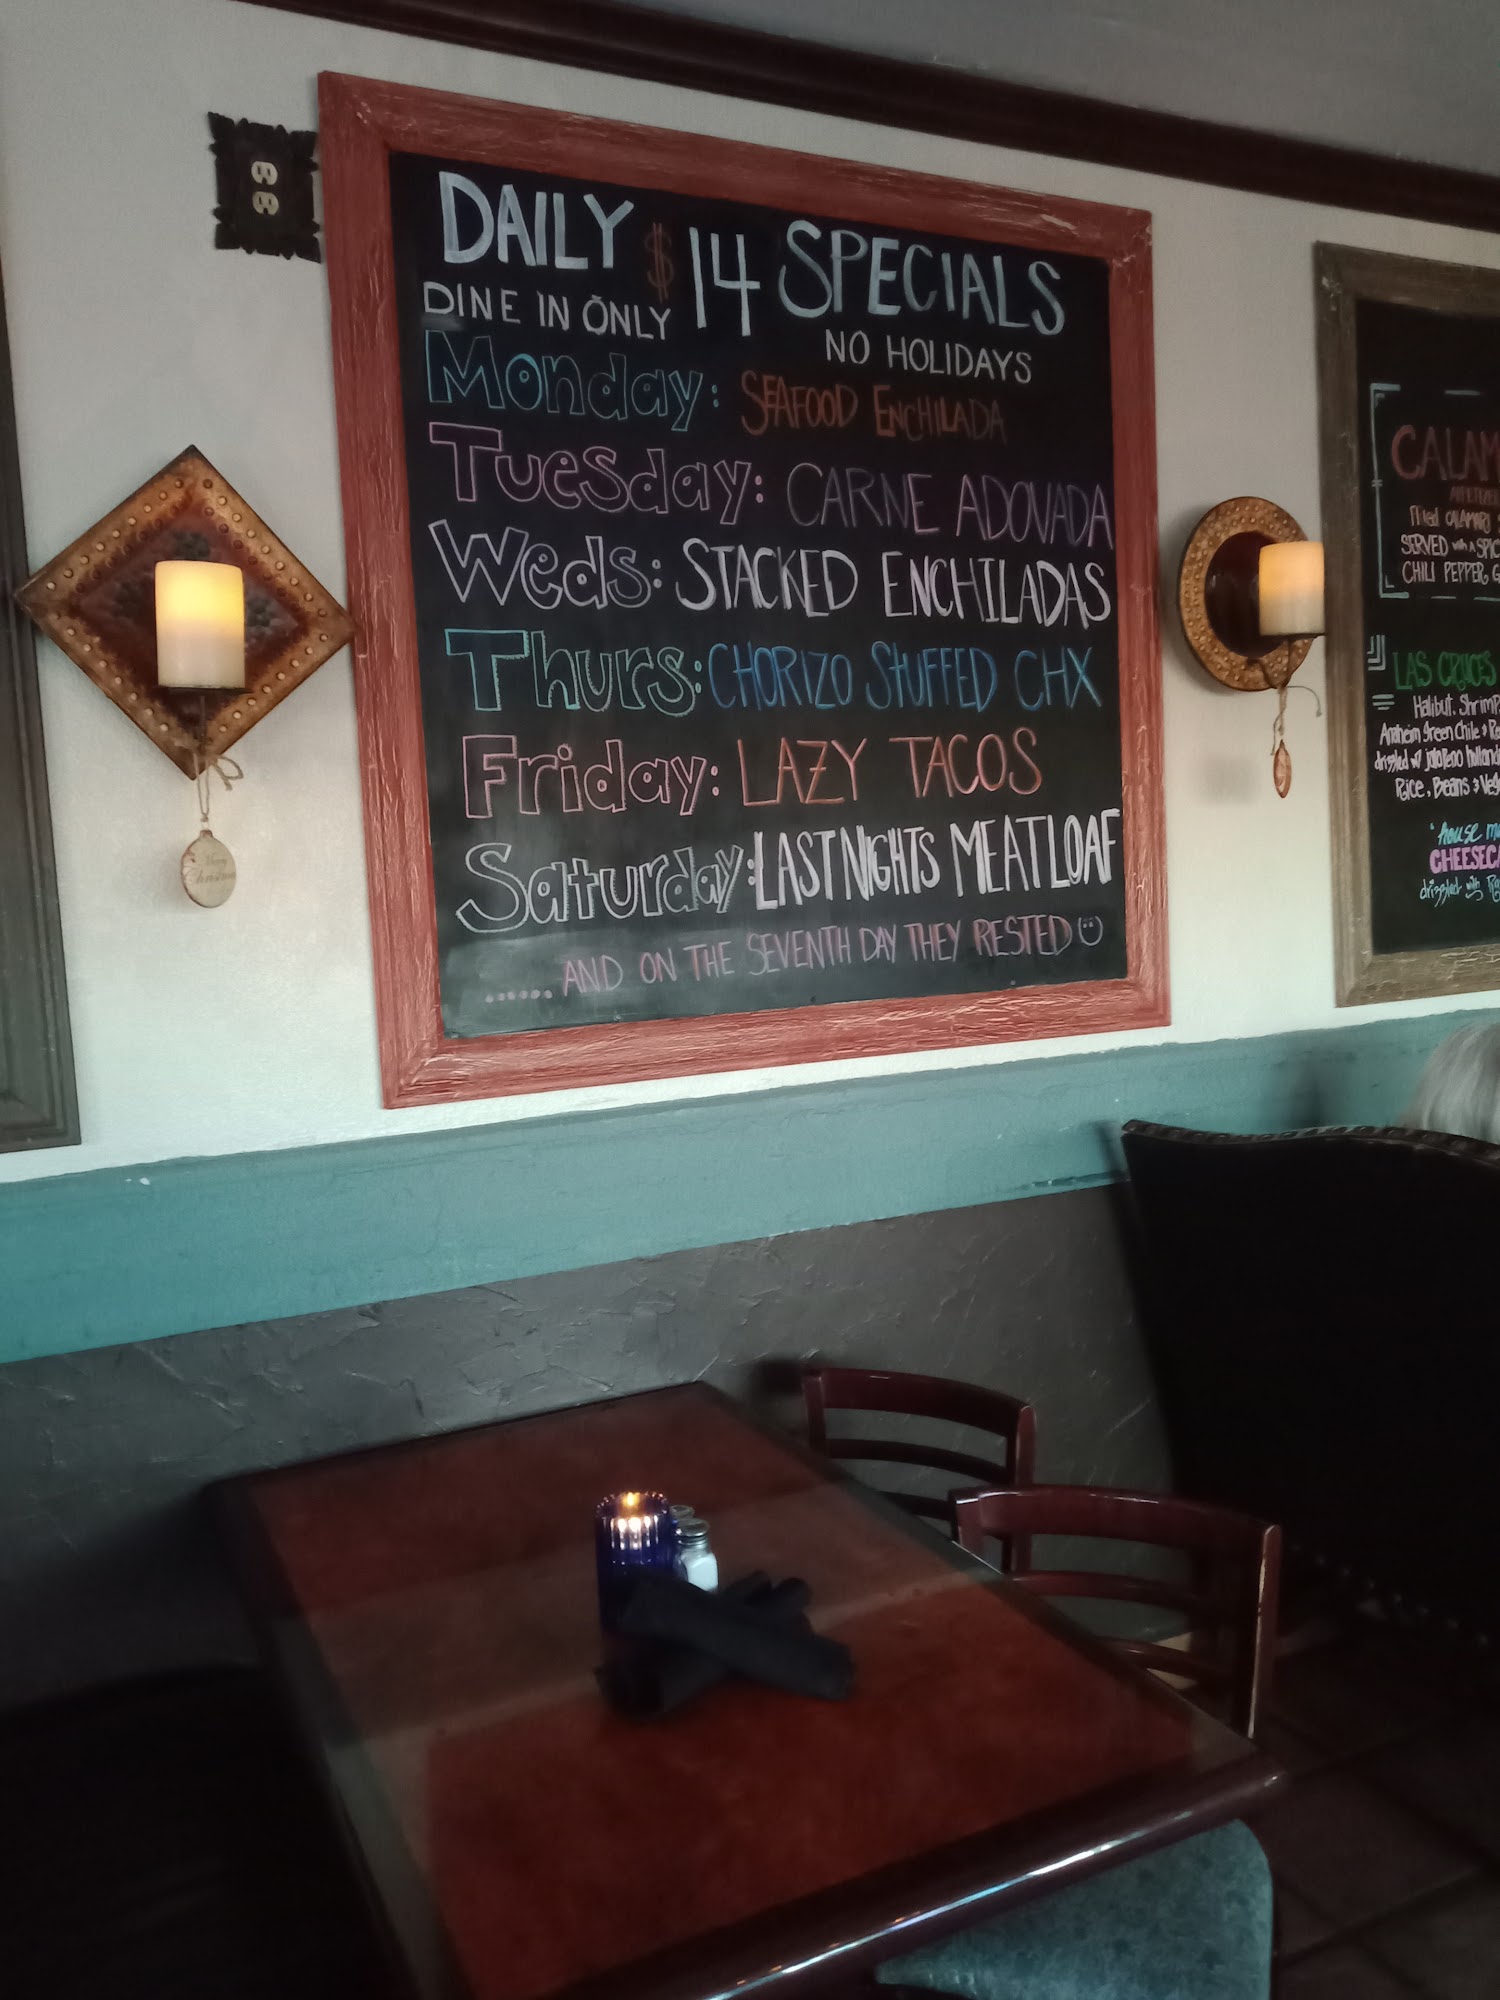 DAILY $14 SPECIALS
DINE IN ONLY
NO HOLIDAYS
Monday: SEAFOOD ENCHILADA
Tuesday: CARNE ADOVADA
Weds: STACKED ENCHILADAS
Thurs: CHORIZO STUFFED CHX
Friday: LAZY TACOS
Saturday: LAST NIGHTS MEATLOAF
...... AND ON THE SEVENTH DAY THEY RESTED
Merry
Christmas
CALAM
Fried CALAMARI
SERVED with A SPIC
CHILI PEPPER G
LAS CRUCES
Halibut, Shrimp,
Anaheim Green Chile &
drizzled w/ Jalapeno holland
Rice, Beans & Veg
house m
CHEESECA
drizzled with